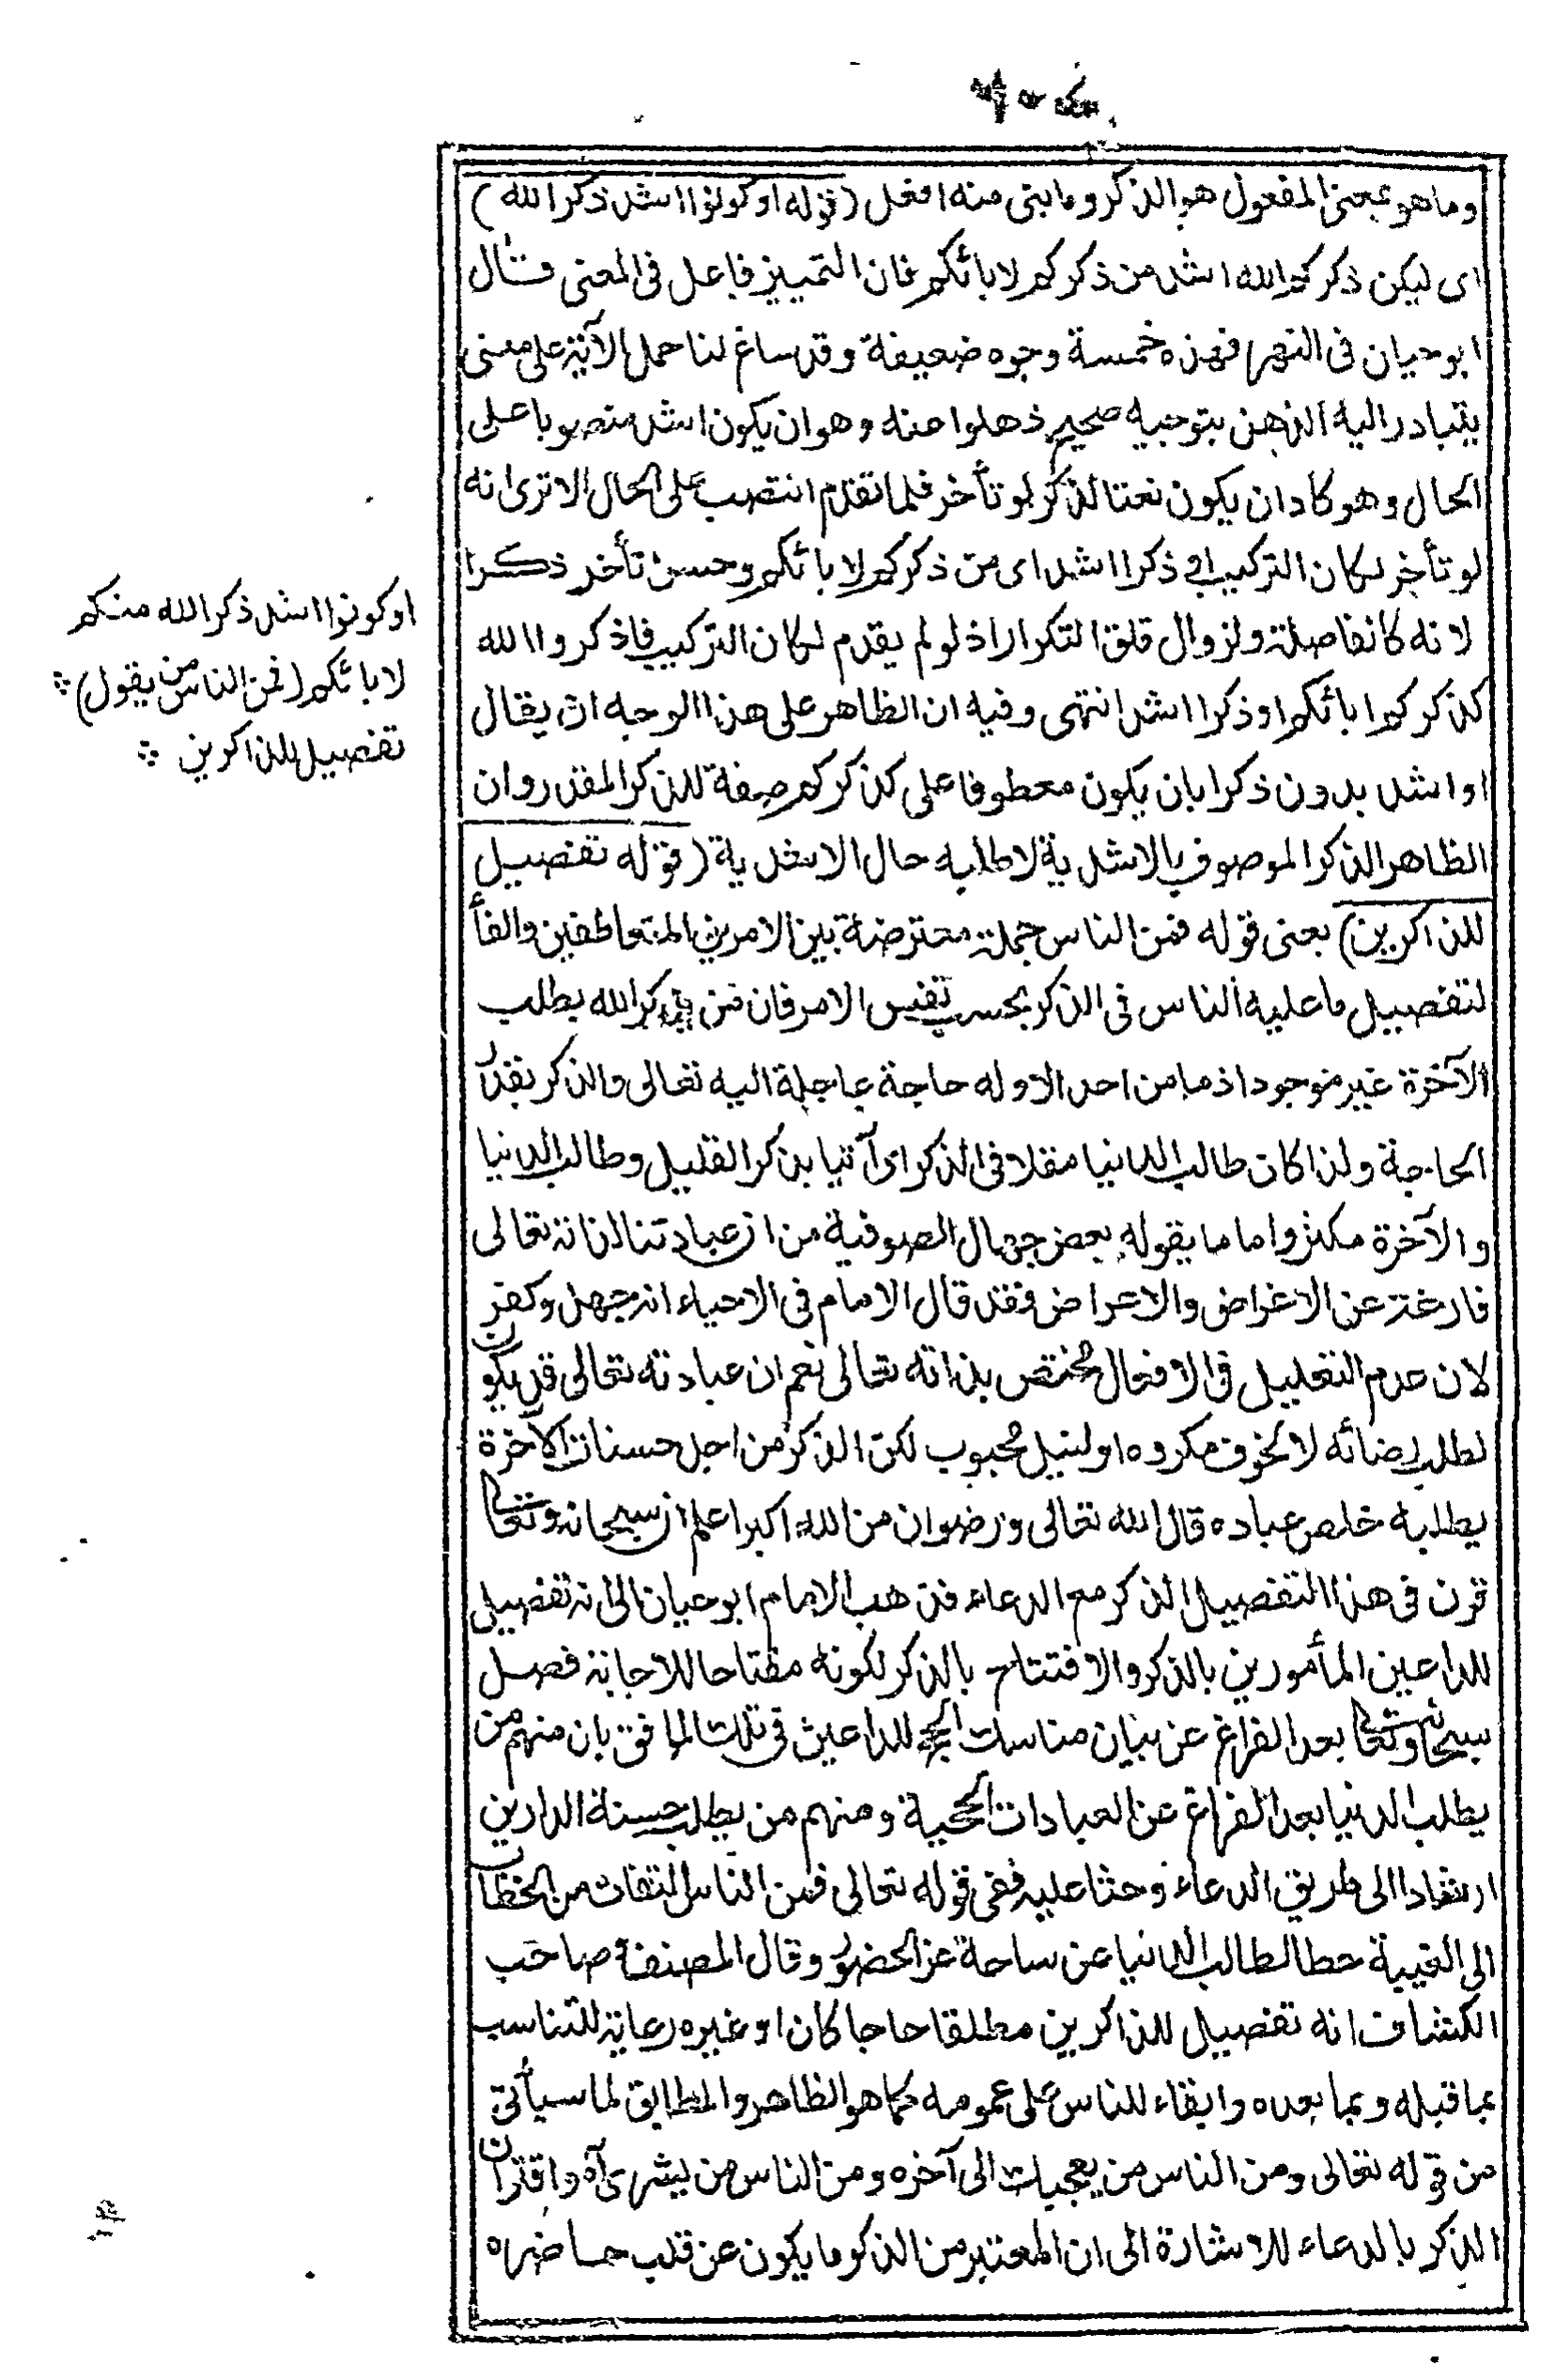 وما هو بمعنى المفعول هو الذكر وما بنى منه افعل (قوله او كونوا اشد ذكرا لله)
اى ليكن ذكركم الله اشد من ذكركم لابائكم فان التمييز فاعل فى المعنى قال
ابو حيان فى النهر فهذه خمسة وجوه ضعيفة وقد ساغ لنا حمل الآية على معنى
يتبادر اليه الذهن بتوجيه صحيح ذهلوا عنه وهو ان يكون اشد منصوبا على
الحال وهو كاد ان يكون نعتا لذكر لو تأخر فلما تقدم انتصب على الحال الا ترى انه
لو تأخر لكان التركيب او ذكرا اشد اى من ذكركم لابائكم وحسن تأخر ذكرا
لانه كالفاصلة ولزوال قلق التكرار اذ لو لم يقدم لكان التركيب فاذكروا الله
كذكركم ابائكم او ذكرا اشد انتهى وفيه ان الظاهر على هذا الوجه ان يقال
او اشد بدون ذكرا بان يكون معطوفا على كذكركم صفة للذكر المقدر وان
الظاهر الذكر الموصوف بالاشدية لا طلبه حال الاشدية (قوله تفصيل
للذاكرين) يعنى قوله فمن الناس جملة معترضة بين الامرين المتعاطفين والفأ
لتفصيل ما عليه الناس فى الذكر بحسب نفس الامر فان من يذكر الله بطلب
الآخرة غير موجود اذ ما من احد الا وله حاجة عاجلة اليه تعالى والذكر بقدر
الحاجة ولذا كان طالب الدنيا مقلا فى الذكر اى آتيا بذكر القليل وطالب الدنيا
والآخرة مكثرا واما ما يقوله بعض جهال الصوفية من ان عبادتنا لذاته تعالى
فارغة عن الاغراض والاعراض فقد قال الامام فى الاحياء انه جهل وكفر
لان عدم التعليل فى الافعال مختص بذاته تعالى نعم ان عبادته تعالى قد يكون
لطلب رضائه لا لخوف مكروه او لنيل محبوب لكن الذكر من اجل حسنات الآخرة
يطلبه خلص عباده قال الله تعالى ورضوان من الله اكبر اعلم انه سبحانه وتعالى
قرن فى هذا التفصيل الذكر مع الدعاء فذهب الامام ابو حيان الى انه تفصيل
للداعين المأمورين بالذكر والافتتاح بالذكر لكونه مفتاحا للاجابة فصل
سبحانه وتعالى بعد الفراغ عن بيان مناسك الحج للداعين فى تلك المواقف بان منهم من
يطلب الدنيا بعد الفراغ عن العبادات الحجية ومنهم من يطلب حسنة الدارين
ارشادا الى طريق الدعاء وحثا عليه ففى قوله تعالى فمن الناس التفات من الخطاب
الى الغيبة حطا لطالب الدنيا عن ساحة عز الحضور وقال المصنف وصاحب
الكشاف انه تفصيل للذاكرين مطلقا حاجا كان او غيره رعاية للتناسب
بما قبله وبما بعده وابقاء للناس على عمومه كما هو الظاهر والمطابق لما سيأتى
من قوله تعالى ومن الناس من يعجبك الى آخره ومن الناس من يشرى آه واقتران
الذكر بالدعاء للاشارة الى ان المعتبر من الذكر ما يكون عن قلب حاضر اه
او كونوا اشد ذكرا لله منكم
لابائكم (فمن الناس من يقول)
تفصيل للذاكرين